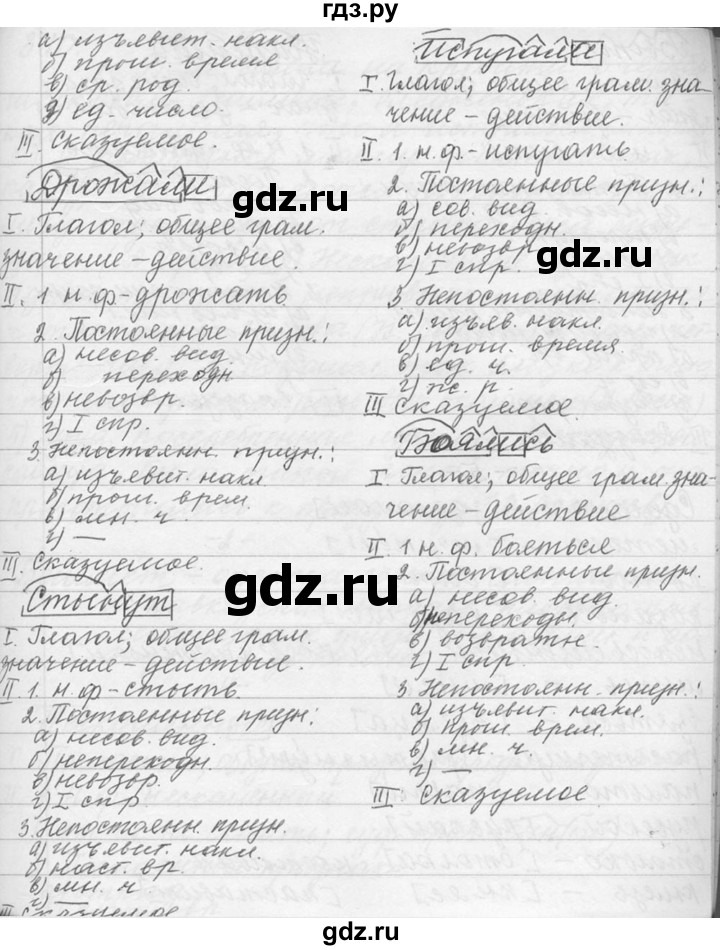 гдз.ру
а) изъявит. накл.
б) прош. время
в) ср. род.
д) ед. число.
III. Сказуемое.
Дрожали
I. Глагол; общее грам.
значение – действие.
II. 1 н.ф – дрожать
2. Постоянные призн.:
а) несов. вид.
б) переходн
в) невозвр.
г) I спр.
3. Непостоянн. призн.:
а) изъявит. накл
б) прош. врем.
в) мн. ч.
г) —
III. Сказуемое.
Стынут
I. Глагол; общее грам.
значение – действие.
II. 1. н.ф – стыть.
2. Постоянные призн:
а) несов. вид.
б) непереходн.
в) невозвр.
г) I спр
3. Непостоянн. призн.
а) изъявит. накл
б) наст. вр.
в) мн. ч
г) —
III Сказуемое
Испугали
I. Глагол; общее грам. зна-
чение – действие.
II. 1. н.ф – испугать.
2. Постоянные призн.:
а) сов. вид.
б) переходн.
в) невозвр.
г) I спр.
3 Непостоянн. призн.:
а) изъяв. накл.
б) прош. время.
в) ед. ч.
г) ж. р.
III Сказуемое.
Боялись
I. Глагол; общее грам. зна-
чение – действие
II. 1 н.ф. бояться
2. Постоянные призн.
а) несов. вид.
б) непереходн.
в) возвратн.
г) I спр.
3. Непостоянн. призн.:
а) изъявит. накл.
б) прош. врем.
в) мн. ч.
г) —
III. Сказуемое
gdz.ru
gdz.ru
gdz.ru
gdz.ru
gdz.ru
gdz.ru
gdz.ru
gdz.ru